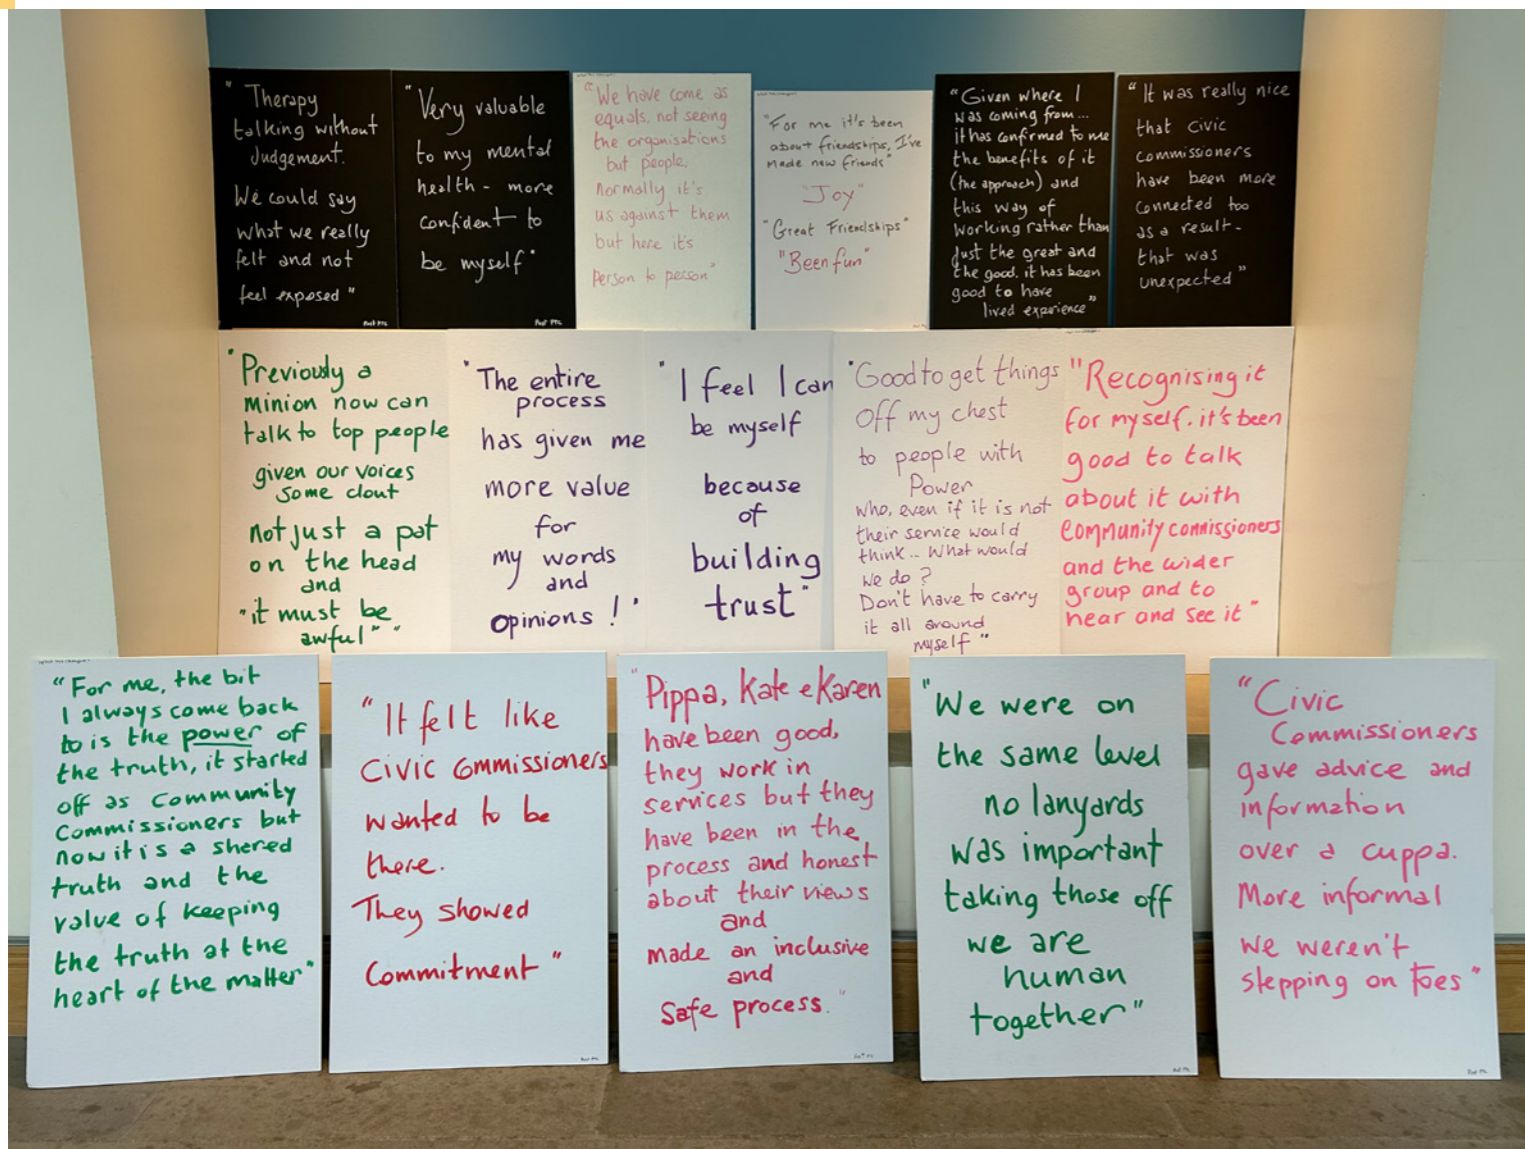 "Therapy
talking without
Judgement.
We could say
what we really
felt and not
feel exposed"
"Very valuable
to my mental
health - more
confident to
be myself"
"We have come as
equals, not seeing
the organisations
but people,
normally it's
us against them
but here it's
person to person"
"For me it's been
about friendships, I've
made new friends"
"Joy"
"Great Friendships"
"Been fun"
"Given where I
was coming from...
it has confirmed to me
the benefits of it
(the approach) and
this way of
working rather than
just the great and
the good. it has been
good to have
lived experience"
"It was really nice
that civic
commissioners
have been more
connected too
as a result -
that was
unexpected"
"Previously a
minion now can
talk to top people
given our voices
some clout
not just a pat
on the head
and
"it must be
awful" "
"The entire
process
has given me
more value
for
my words
and
opinions !"
"I feel I can
be myself
because
of
building
trust"
"Good to get things
off my chest
to people with
Power
who, even if it is not
their service would
think... What would
we do ?
Don't have to carry
it all around
myself"
"Recognising it
for myself. it's been
good to talk
about it with
Community commissioners
and the wider
group and to
hear and see it"
"For me, the bit
I always come back
to is the power of
the truth, it started
off as Community
Commissioners but
now it is a shared
truth and the
value of keeping
the truth at the
heart of the matter"
"It felt like
Civic Commissioners
wanted to be
there.
They showed
Commitment"
"Pippa, Kate & Karen
have been good,
they work in
services but they
have been in the
process and honest
about their views
and
made an inclusive
and
safe process."
"We were on
the same level
no lanyards
was important
taking those off
we are
human
together"
"Civic
Commissioners
gave advice and
information
over a cuppa.
More informal
we weren't
stepping on toes"